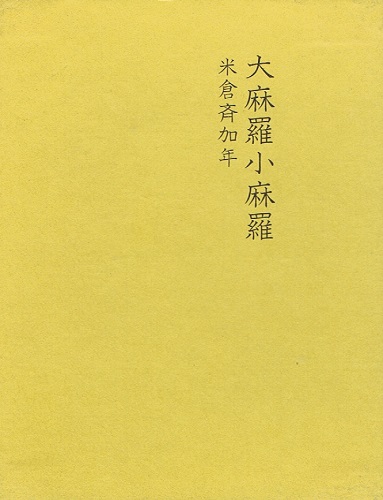 大麻羅小麻羅
米倉斉加年